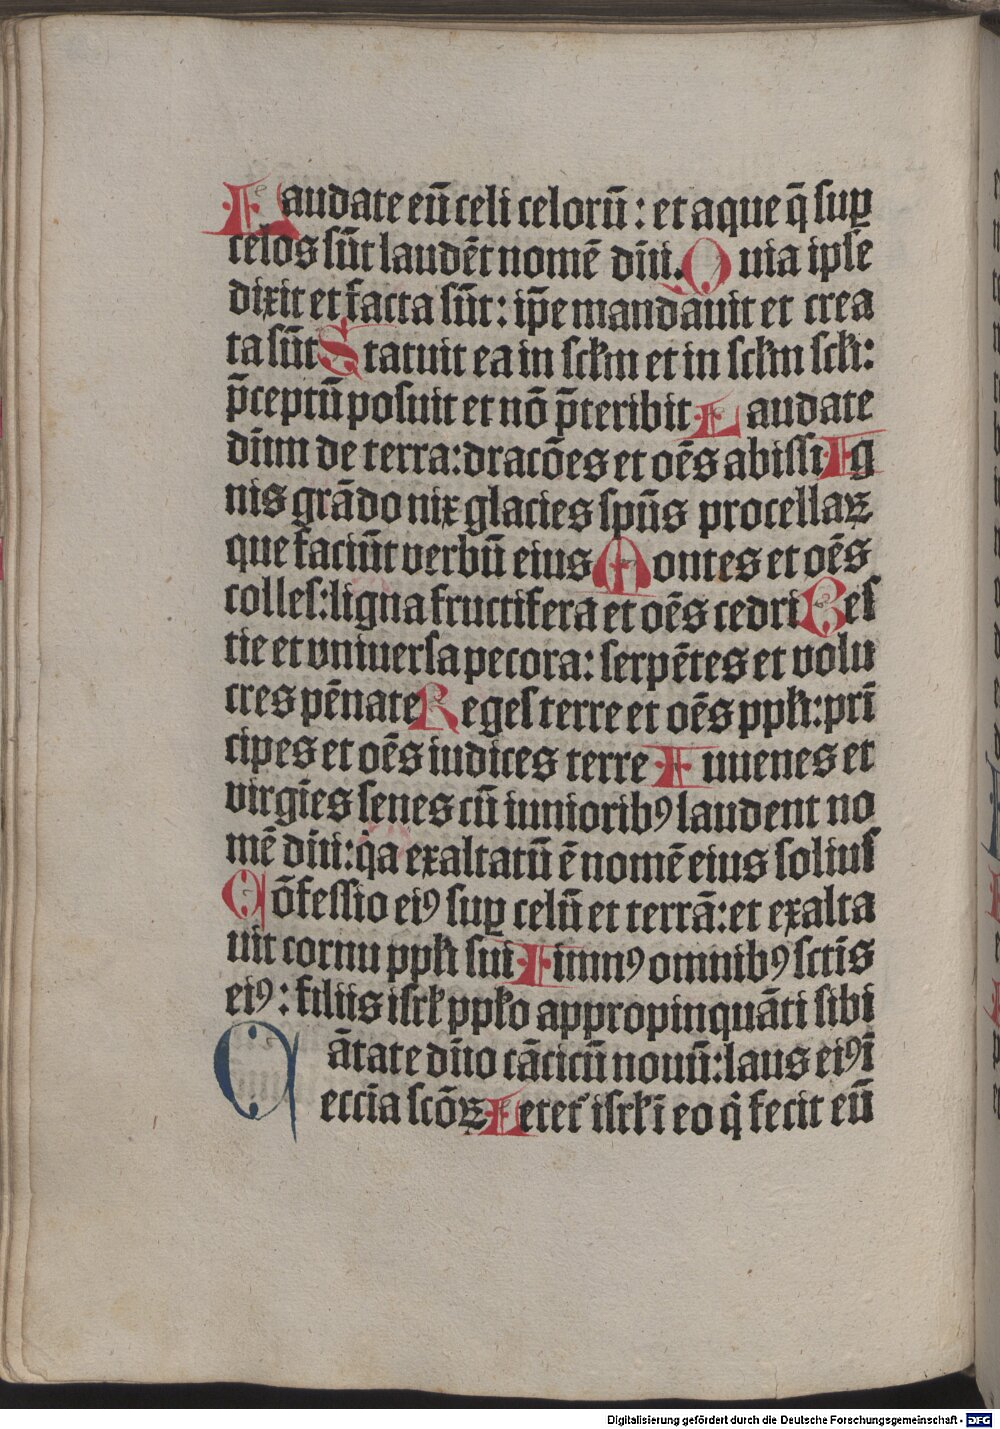 Laudate eū celi celorū : et aque q̄ suꝑ
celos sūt laudēt nomē dn̄i. Quia ipse
dixit et facta sūt : ip̄e mandauit et crea
ta sūt Statuit ea in sclm et in sclm scli:
p̄ceptū posuit et nō p̄teribit Laudate
dn̄m de terra: dracōes et oēs abissi Ig
nis grādo nix glacies spūs procellaꝝ
que faciūt verbū eius Montes et oēs
colles: ligna fructifera et oēs cedri Bes
tie et vniuersa pecora: serpētes et volu
cres pēnate Reges terre et oēs ppli: prī
cipes et oēs iudices terre Iuuenes et
virgīes senes cū iuniorib⁹ laudent no
mē dn̄i: q̇a exaltatū ē nomē eius solius
Cōfessio ei⁹ suꝑ celū et terrā: et exalta
uit cornu ppli sui Iimn⁹ omnib⁹ sctīs
ei⁹ : filiis isrł pplo appropinquāti sibi
Cātate dn̄o cāticū nouū: laus ei⁹ ī
eccīa scōꝝ Letet᷑ isrł ī eo q̇ fecit eū
Digitalisierung gefördert durch die Deutsche Forschungsgemeinschaft - DFG